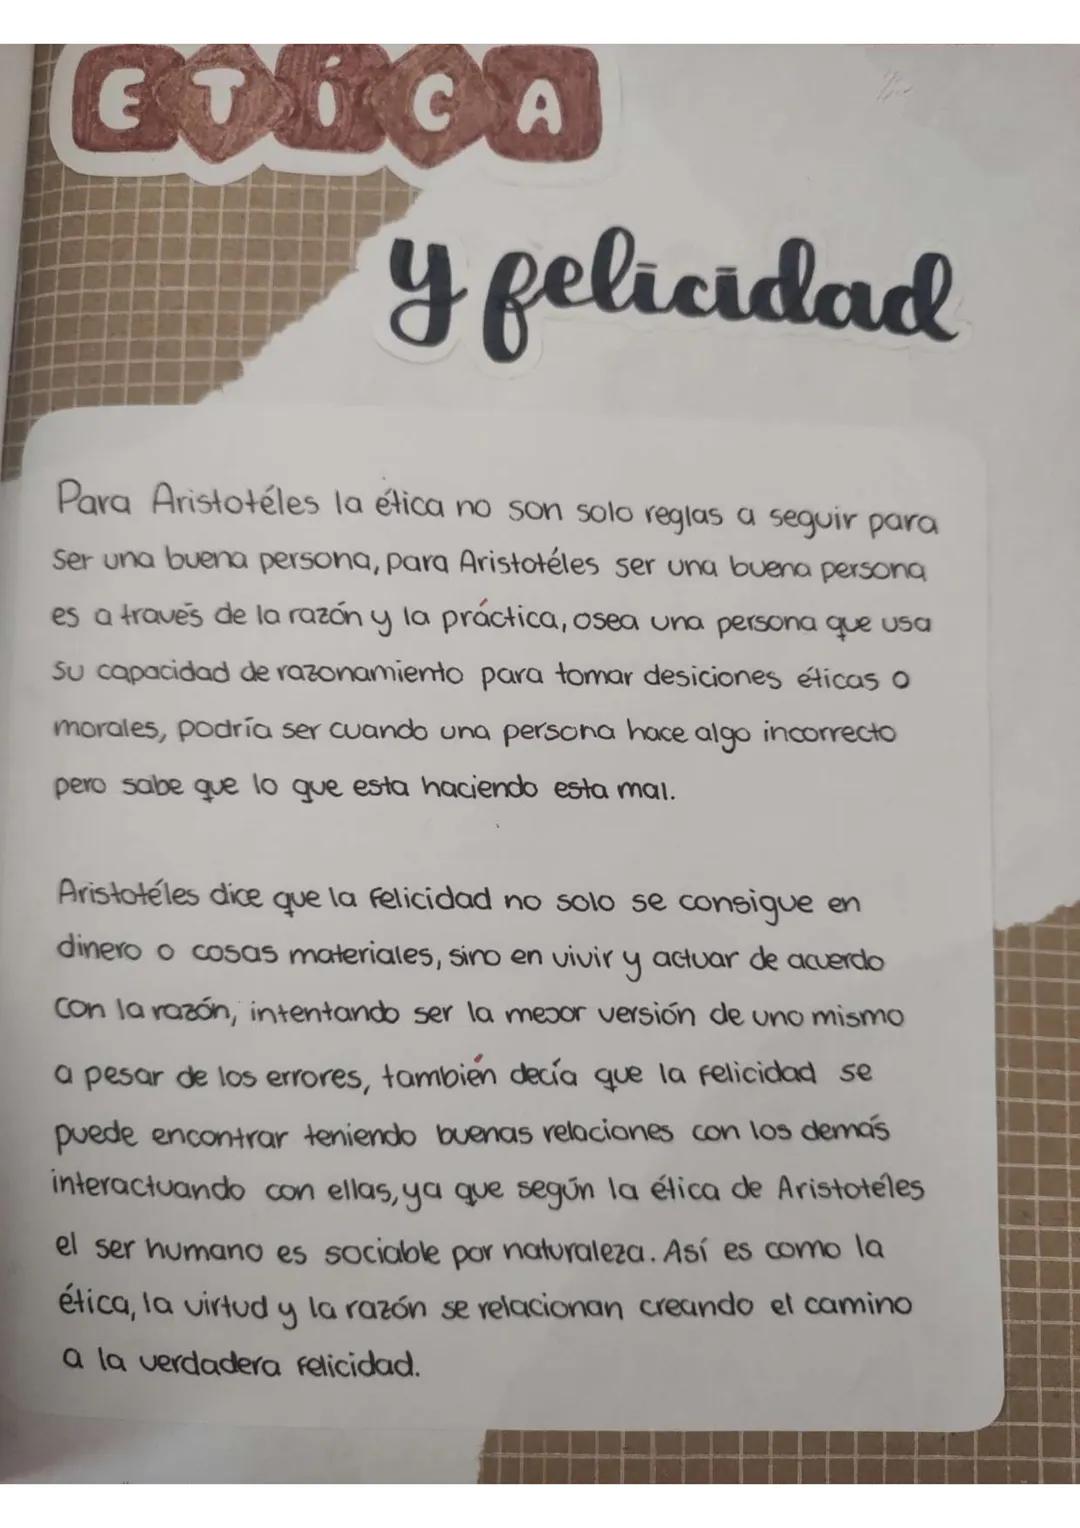 ETÍCA
y felicidad
Para Aristotéles la ética no son solo reglas a seguir para
ser una buena persona, para Aristotéles ser una buena persona
es a través de la razón y la práctica, osea una persona que usa
su capacidad de razonamiento para tomar desiciones éticas o
morales, podría ser cuando una persona hace algo incorrecto
pero sabe que lo que esta haciendo esta mal.
Aristotéles dice que la felicidad no solo se consigue en
dinero o cosas materiales, sino en vivir y actuar de acuerdo
con la razón, intentando ser la mejor versión de uno mismo
a pesar de los errores, también decía que la felicidad se
puede encontrar teniendo buenas relaciones con los demás
interactuando con ellas, ya que según la ética de Aristotéles
el ser humano es sociable por naturaleza. Así es como la
ética, la virtud y la razón se relacionan creando el camino
a la verdadera felicidad.